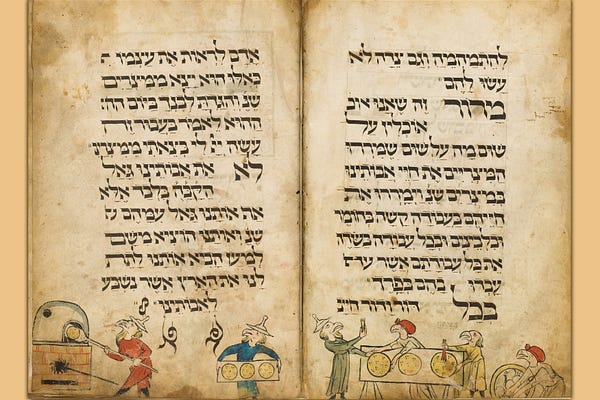 להתמהמה וגם צדה לא
עשו להם
מרור זה שאנו אוכ
אוכלין על
שום מה על שום שמררו
המצריים את חיי אבותינו
במצרים שנ וימררו את
חייהם בעבודה קשה בחומר
ובלבנים ובכל עבודה בשדה
את כל עבודתם אשר
עבדו בהם בפרך
בכל דור ודור חייב
אדם לראות את עצמו
כאילו הוא יצא ממצרים
שנ והגדת לבנך ביום
ההוא לאמר בעבור זה
עשה יי לי בצאתי ממצרים
לא את אבותינו גאל
הקבה בלבד אלא
אף אותנו גאל עמהם
שנ ואותנו הוציא משם
למען הביא אותנו לתת
לנו את הארץ אשר נשבע
לאבותינו